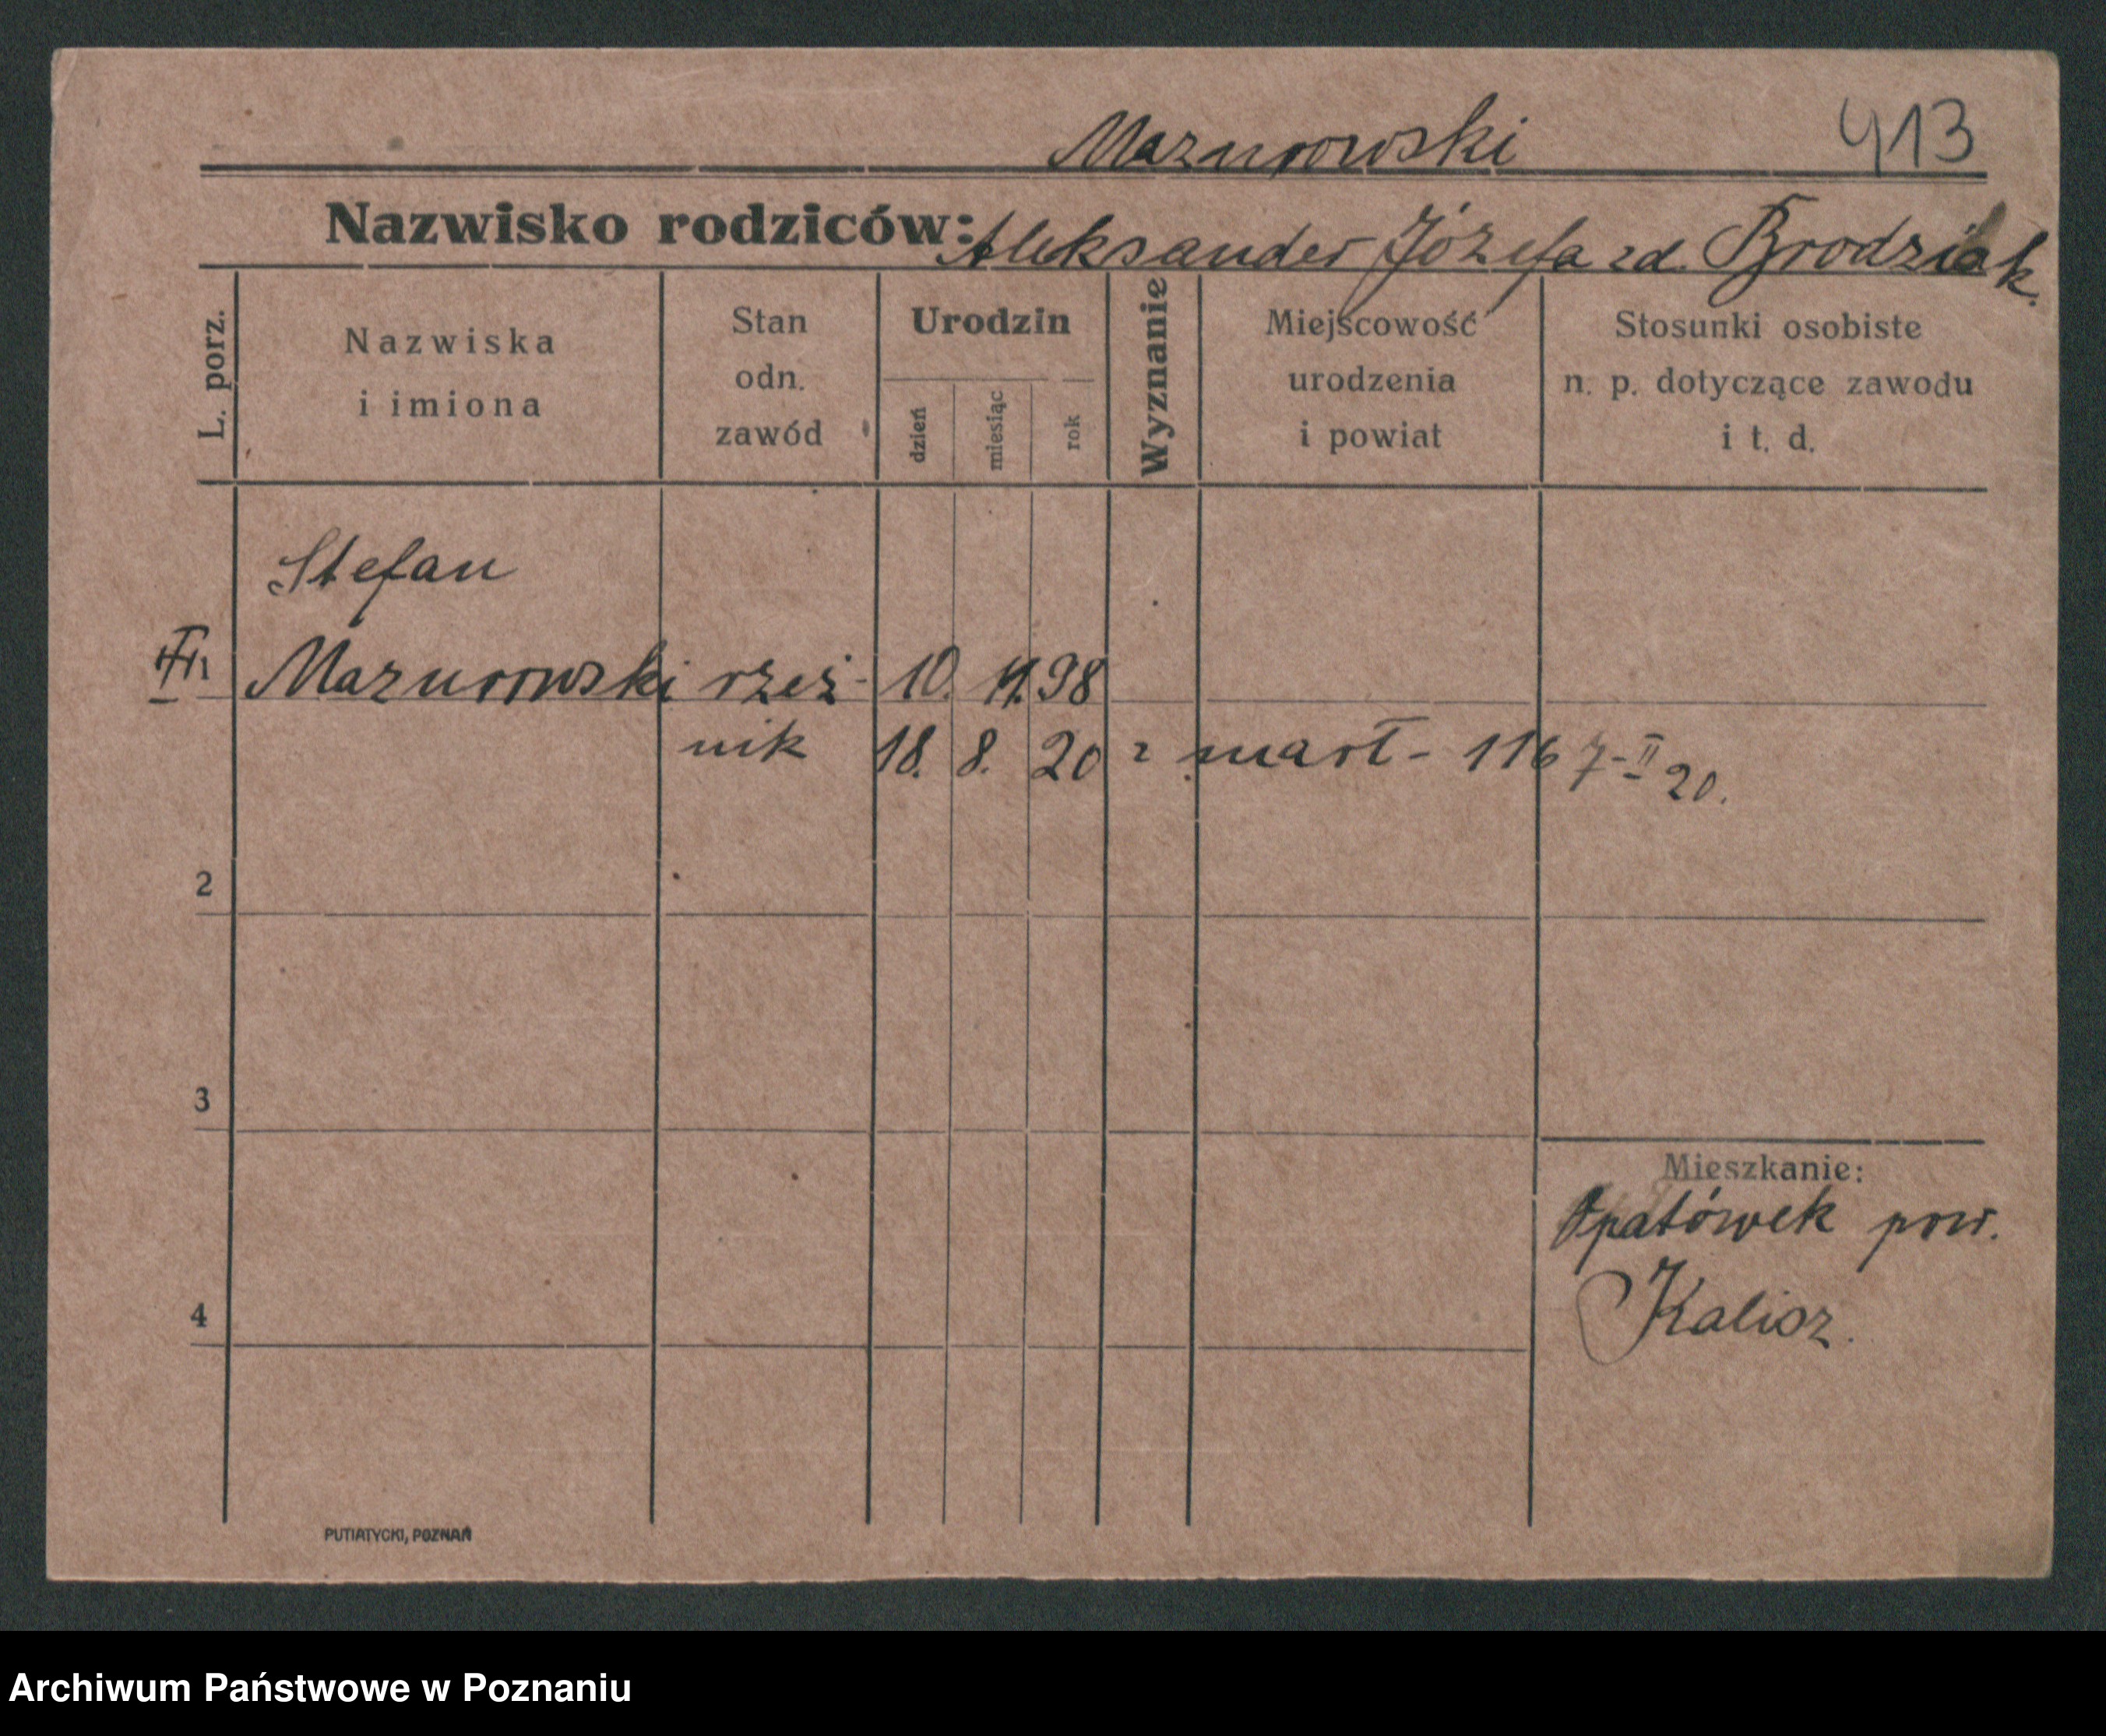 Mazurowski 413
Nazwisko rodziców: Aleksander Józefa zd. Brodziak.
L. porz.
Nazwiska
i imiona
Stan
odn.
zawód
Urodzin
dzień
miesiąc
rok
Wyznanie
Miejscowość
urodzenia
i powiat
Stosunki osobiste
n. p. dotyczące zawodu
i t. d.
Stefan
Mazurowski rzeź- 10. 98
nik 18. 8. 20 zmarł - 116 7-II 20.
2
3
4
Mieszkanie:
Opatówek pow.
Kalisz.
PUTIATYCKI, POZNAŃ
Archiwum Państwowe w Poznaniu